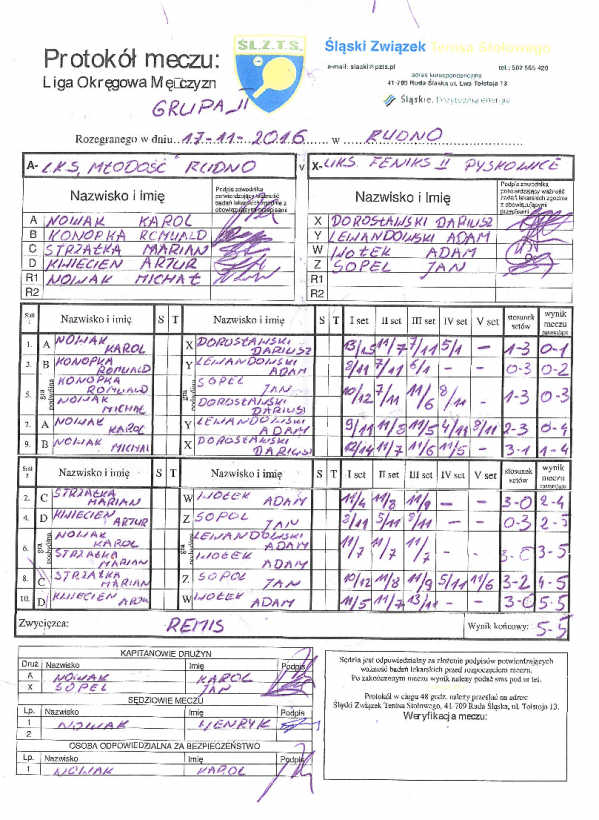 Protokół meczu:
Liga Okręgowa Mężczyzn
GRUPA II
ŚL.Z.T.S.
Śląski Związek Tenisa Stołowego
e-mail: slaski@pzts.pl tel.: 502 565 420
adres korespondencyjny
41-709 Ruda Śląska ul. Lwa Tołstoja 13
Śląskie. Pozytywna energia
Rozegranego w dniu 17-11-2016 w RUDNO
A- LKS, MŁODOŚĆ RUDNO v X- UKS FENIKS II PYSKOWICE
Nazwisko i imię Podpis zawodnika potwierdzający ważność badań lekarskich zgodnie z obowiązującymi przepisami Nazwisko i Imię Podpis zawodnika, potwierdzający ważność badań lekarskich zgodnie z obowiązującymi przepisami
A NOWAK KAROL X DOROSŁAWSKI DARIUSZ
B KONOPKA ROMUALD Y LEWANDOWSKI ADAM
C STRZAŁKA MARIAN W WOŁEK ADAM
D KWIECIEN ARTUR Z SOPEL JAN
R1 NOWAK MICHAŁ R1
R2 R2
Stół 1 Nazwisko i imię S T Nazwisko i imię S T I set II set III set IV set V set stosunek setów wynik meczu
1. A NOWAK KAROL X DOROSŁAWSKI DARIUSZ 13/15 11/7 7/11 5/1 - 1-3 0-1
3. B KONOPKA ROMUALD Y LEWANDOWSKI ADAM 8/11 7/11 6/1 - 0-3 0-2
5. gra podwójna KONOPKA ROMUALD NOWAK MICHAŁ gra podwójna SOPEL JAN DOROSŁAWSKI DARIUSZ 10/12 7/11 11/6 8/11 - 1-3 0-3
7. A NOWAK KAROL Y LEWANDOWSKI ADAM 9/11 11/8 11/5 4/11 8/11 2-3 0-4
9. B NOWAK MICHAŁ X DOROSŁAWSKI DARIUSZ 12/14 11/7 11/6 11/5 - 3-1 1-4
Stół 2 Nazwisko i imię S T Nazwisko i imię S T I set II set III set IV set V set stosunek setów wynik meczu
2. C STRZAŁKA MARIAN W WOŁEK ADAM 11/4 11/8 11/9 - - 3-0 2-4
4. D KWIECIEN ARTUR Z SOPOL JAN 8/11 5/11 8/11 - - 0-3 2-5
6. gra podwójna NOWAK KAROL STRZAŁKA MARIAN LEWANDOWSKI ADAM WOŁEK ADAM 11/7 11/7 11/7 3-0 3-5
8. C STRZAŁKA MARIAN Z SOPOL JAN 10/12 11/8 11/9 5/11 11/6 3-2 4-5
10. D KWIECIEN W WOŁEK ADAM 11/5 11/7 13/11 - - 3-0 5-5
Zwycięzca: REMIS Wynik końcowy: 5-5
KAPITANOWIE DRUŻYN
Druż Nazwisko Imię Podpis
A NOWAK KAROL
X SOPEL JAN
SĘDZIOWIE MECZU
Lp. Nazwisko Imię Podpis
1 NOWAK HENRYK
2
OSOBA ODPOWIEDZIALNA ZA BEZPIECZEŃSTWO
Lp. Nazwisko Imię Podpis
1 NOWAK KAROL
Sędzia jest odpowiedzialny za złożenie podpisów potwierdzających
ważność badań lekarskich przed rozpoczęciem meczu.
Po zakończonym meczu wynik należy podać sms pod w/w tel.
Protokół w ciągu 48 godz. należy przesłać na adres
Śląski Związek Tenisa Stołowego, 41-709 Ruda Śląska, ul. Tołstoja 13.
Weryfikacja meczu: